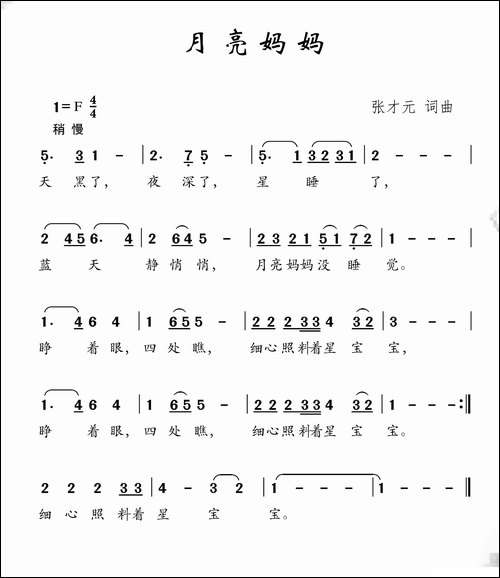 月亮妈妈
1=F 4/4
张才元 词曲
稍慢
5. 3 1 - | 2. 7 5 - | 5. 1 3 2 3 1 | 2 - - - |
天黑了， 夜深了， 星睡了，
2 4 5 6. 4 | 2 6 4 5 - | 2 3 2 1 5 1 7 2 | 1 - - - |
蓝天静悄悄， 月亮妈妈没睡觉。
1. 4 6 4 | 1 6 5 5 - | 2 2 2 2 3 3 4 3 2 | 3 - - - |
睁着眼，四处瞧， 细心照料着星宝宝，
1. 4 6 4 | 1 6 5 5 - | 2 2 2 2 3 3 4 3 2 | 1 - - :||
睁着眼，四处瞧， 细心照料着星宝宝。
2 2 2 3 3 | 4 - 3 2 | 1 - - - | 1 - - - ||
细心照料着星宝宝。